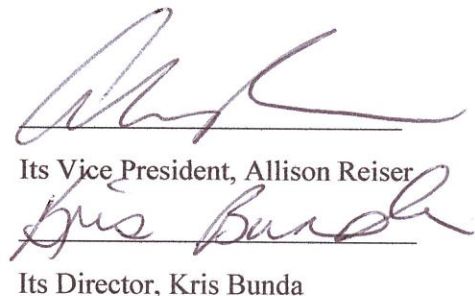 Its Vice President, Allison Reiser
Kris Bunda
Its Director, Kris Bunda